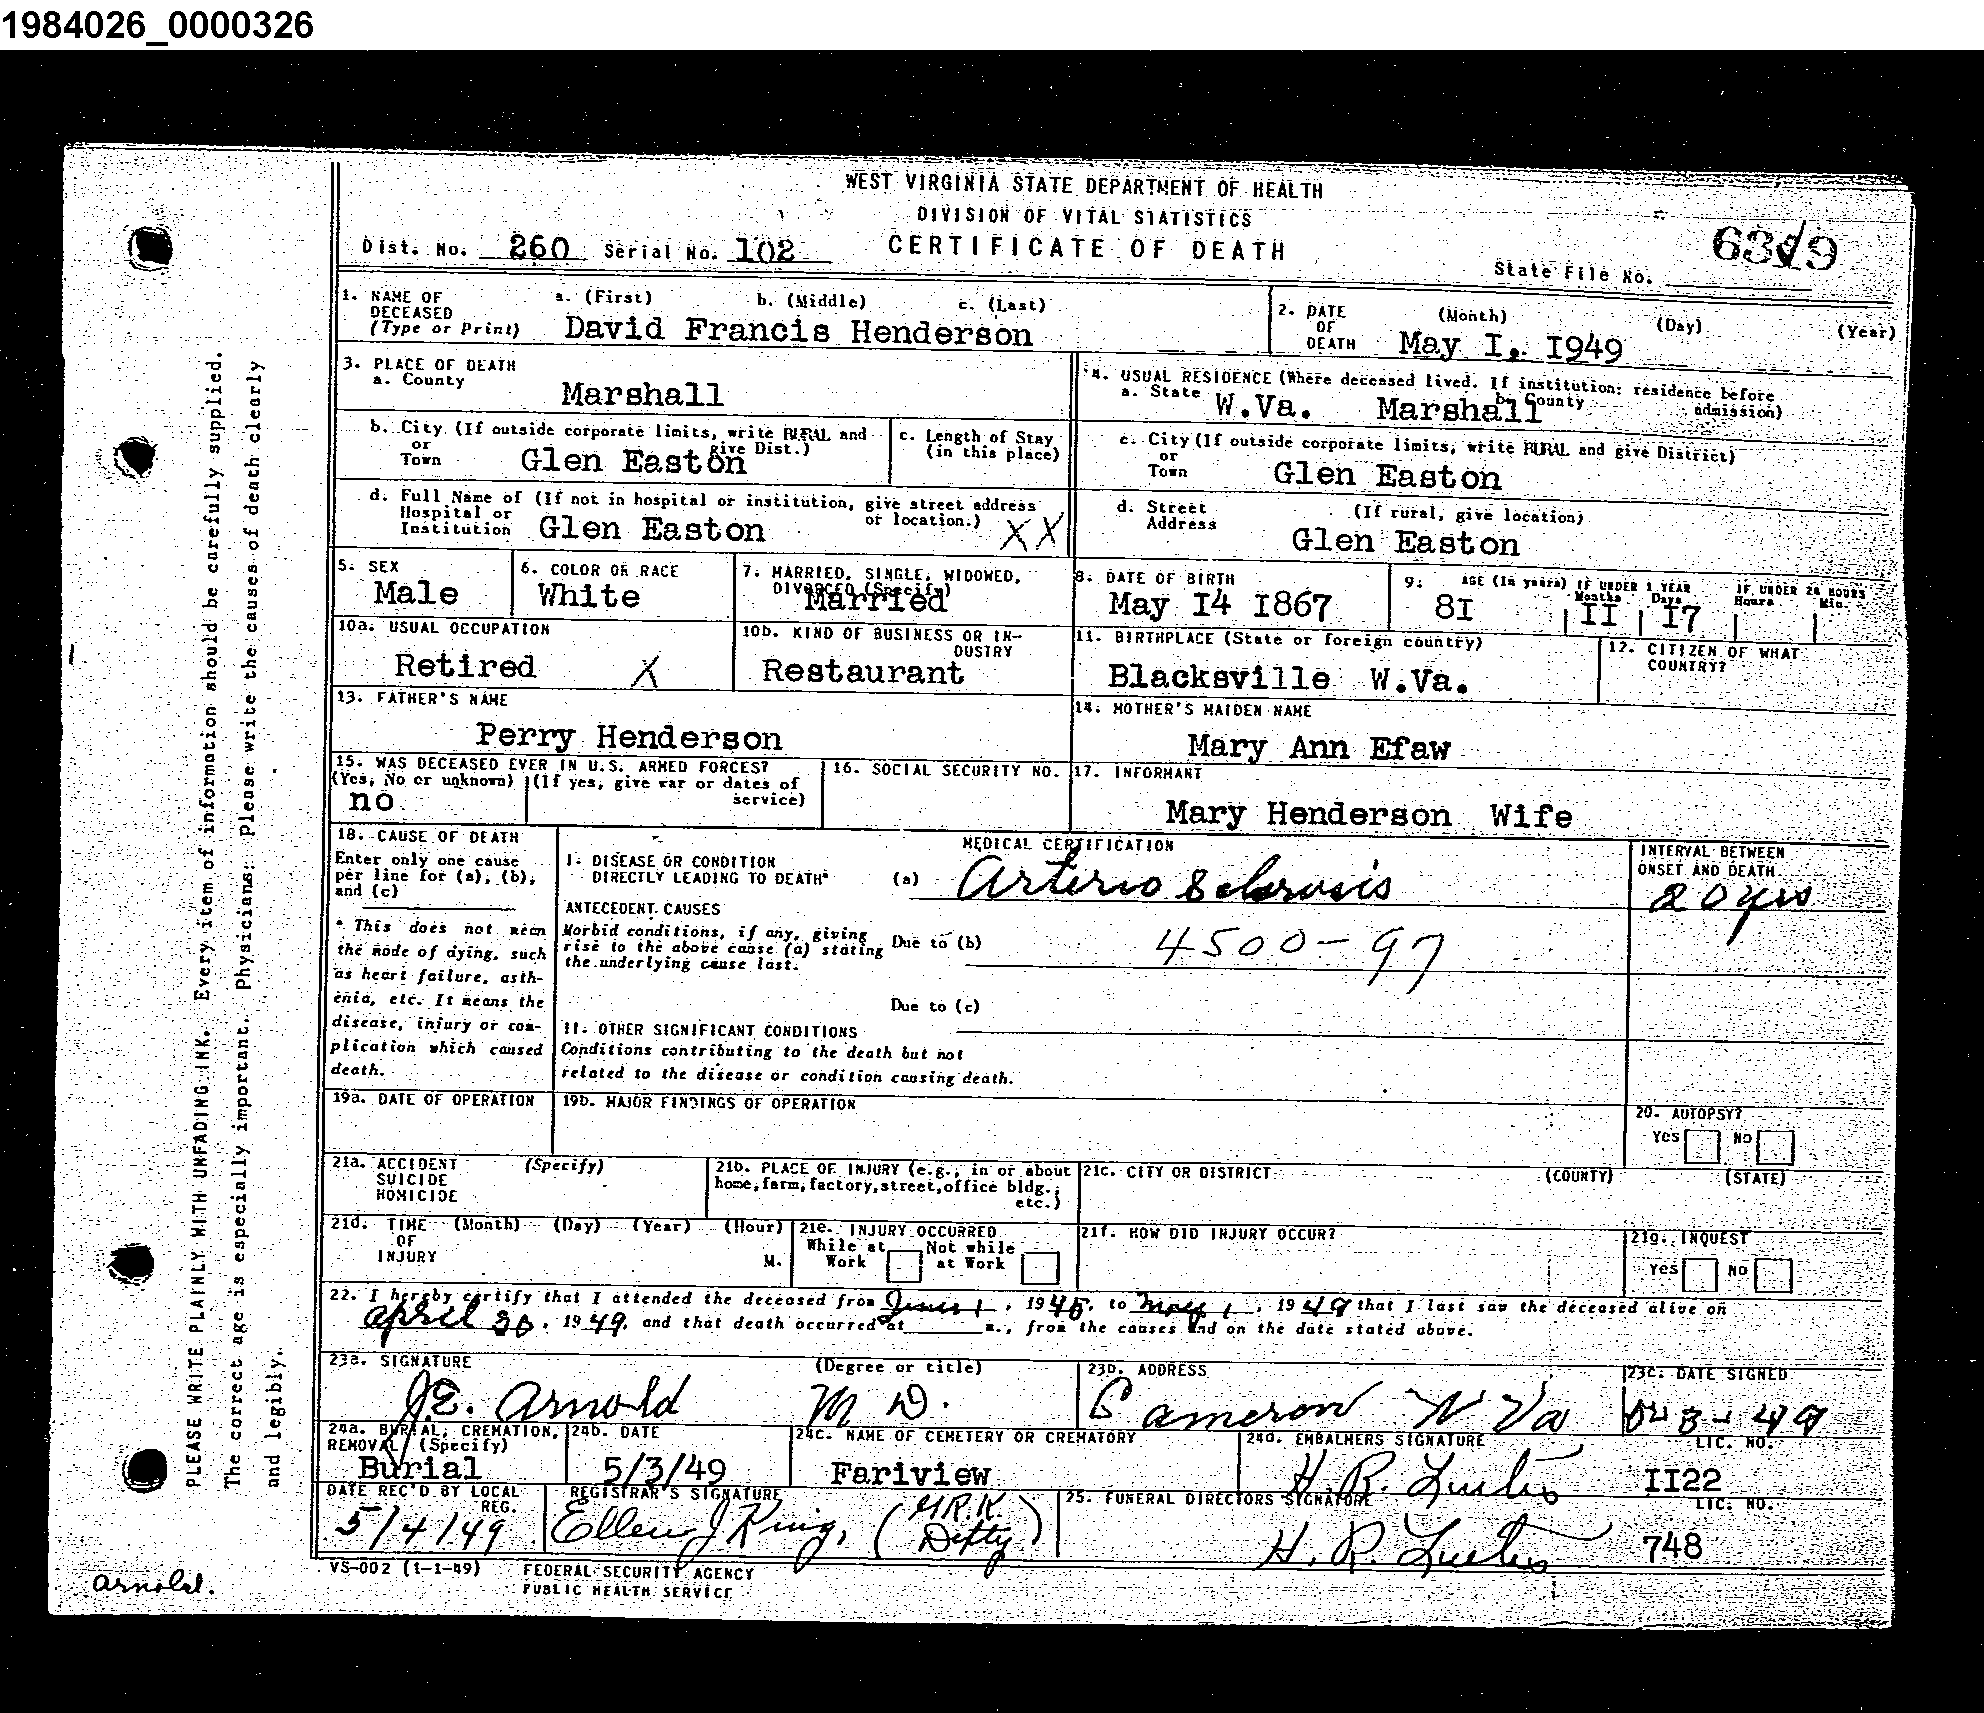 1984026_0000326
WEST VIRGINIA STATE DEPARTMENT OF HEALTH
DIVISION OF VITAL STATISTICS
Dist. No. 260 Serial No. 102 CERTIFICATE OF DEATH
State File No. 6319
1. NAME OF DECEASED (Type or Print) a. (First) b. (Middle) c. (Last)
David Francis Henderson
2. DATE OF DEATH (Month) (Day) (Year)
May I, I949
3. PLACE OF DEATH
a. County
Marshall
4. USUAL RESIDENCE (Where deceased lived. If institution: residence before admission)
a. State W.Va. b. County Marshall
b. City (If outside corporate limits, write RURAL and give Dist.)
or Town Glen Easton
c. Length of Stay (in this place)
c. City (If outside corporate limits, write RURAL and give District)
or Town Glen Easton
d. Full Name of (If not in hospital or institution, give street address or location.)
Hospital or Institution Glen Easton XX
d. Street Address (If rural, give location)
Glen Easton
5. SEX
Male
6. COLOR OR RACE
White
7. MARRIED, SINGLE, WIDOWED, DIVORCED (Specify)
Married
8. DATE OF BIRTH
May I4 I867
9. AGE (In years) IF UNDER 1 YEAR Months Days IF UNDER 24 HOURS Hours Min.
8I II I7
10a. USUAL OCCUPATION
Retired X
10b. KIND OF BUSINESS OR INDUSTRY
Restaurant
11. BIRTHPLACE (State or foreign country)
Blacksville W.Va.
12. CITIZEN OF WHAT COUNTRY?
13. FATHER'S NAME
Perry Henderson
14. MOTHER'S MAIDEN NAME
Mary Ann Efaw
15. WAS DECEASED EVER IN U.S. ARMED FORCES?
(Yes, No or unknown) (If yes, give war or dates of service)
no
16. SOCIAL SECURITY NO.
17. INFORMANT
Mary Henderson Wife
18. CAUSE OF DEATH
Enter only one cause per line for (a), (b), and (c)
* This does not mean the mode of dying, such as heart failure, asthenia, etc. It means the disease, injury or complication which caused death.
MEDICAL CERTIFICATION
INTERVAL BETWEEN ONSET AND DEATH
I. DISEASE OR CONDITION DIRECTLY LEADING TO DEATH*
(a) Arterio Sclerosis 20 yrs
ANTECEDENT CAUSES
Morbid conditions, if any, giving rise to the above cause (a) stating the underlying cause last.
Due to (b)
4500-97
Due to (c)
II. OTHER SIGNIFICANT CONDITIONS
Conditions contributing to the death but not
related to the disease or condition causing death.
19a. DATE OF OPERATION
19b. MAJOR FINDINGS OF OPERATION
20. AUTOPSY?
Yes No
21a. ACCIDENT SUICIDE HOMICIDE (Specify)
21b. PLACE OF INJURY (e.g., in or about home, farm, factory, street, office bldg., etc.)
21c. CITY OR DISTRICT (COUNTY) (STATE)
21d. TIME OF INJURY (Month) (Day) (Year) (Hour) M.
21e. INJURY OCCURRED
While at Work Not while at Work
21f. HOW DID INJURY OCCUR?
21g. INQUEST
Yes No
22. I hereby certify that I attended the deceased from June 1, 1945, to May 1, 1949 that I last saw the deceased alive on
April 30, 1949, and that death occurred at m., from the causes and on the date stated above.
23a. SIGNATURE (Degree or title)
J.E. Arnold M D.
23b. ADDRESS
Cameron W Va
23c. DATE SIGNED
3-49
24a. BURIAL, CREMATION, REMOVAL (Specify)
Burial
24b. DATE
5/3/49
24c. NAME OF CEMETERY OR CREMATORY
Fariview
24d. EMBALMERS SIGNATURE LIC. NO.
H. R. II22
DATE REC'D BY LOCAL REG.
5/4/49
REGISTRAR'S SIGNATURE
Ellen J King, (M.R.K. Depty)
25. FUNERAL DIRECTORS SIGNATURE LIC. NO.
H. R. 748
VS-002 (1-1-49) FEDERAL SECURITY AGENCY
PUBLIC HEALTH SERVICE
PLEASE WRITE PLAINLY WITH UNFADING INK. Every item of information should be carefully supplied.
The correct age is especially important. Physicians: Please write the causes of death clearly
and legibly.
Arnold.